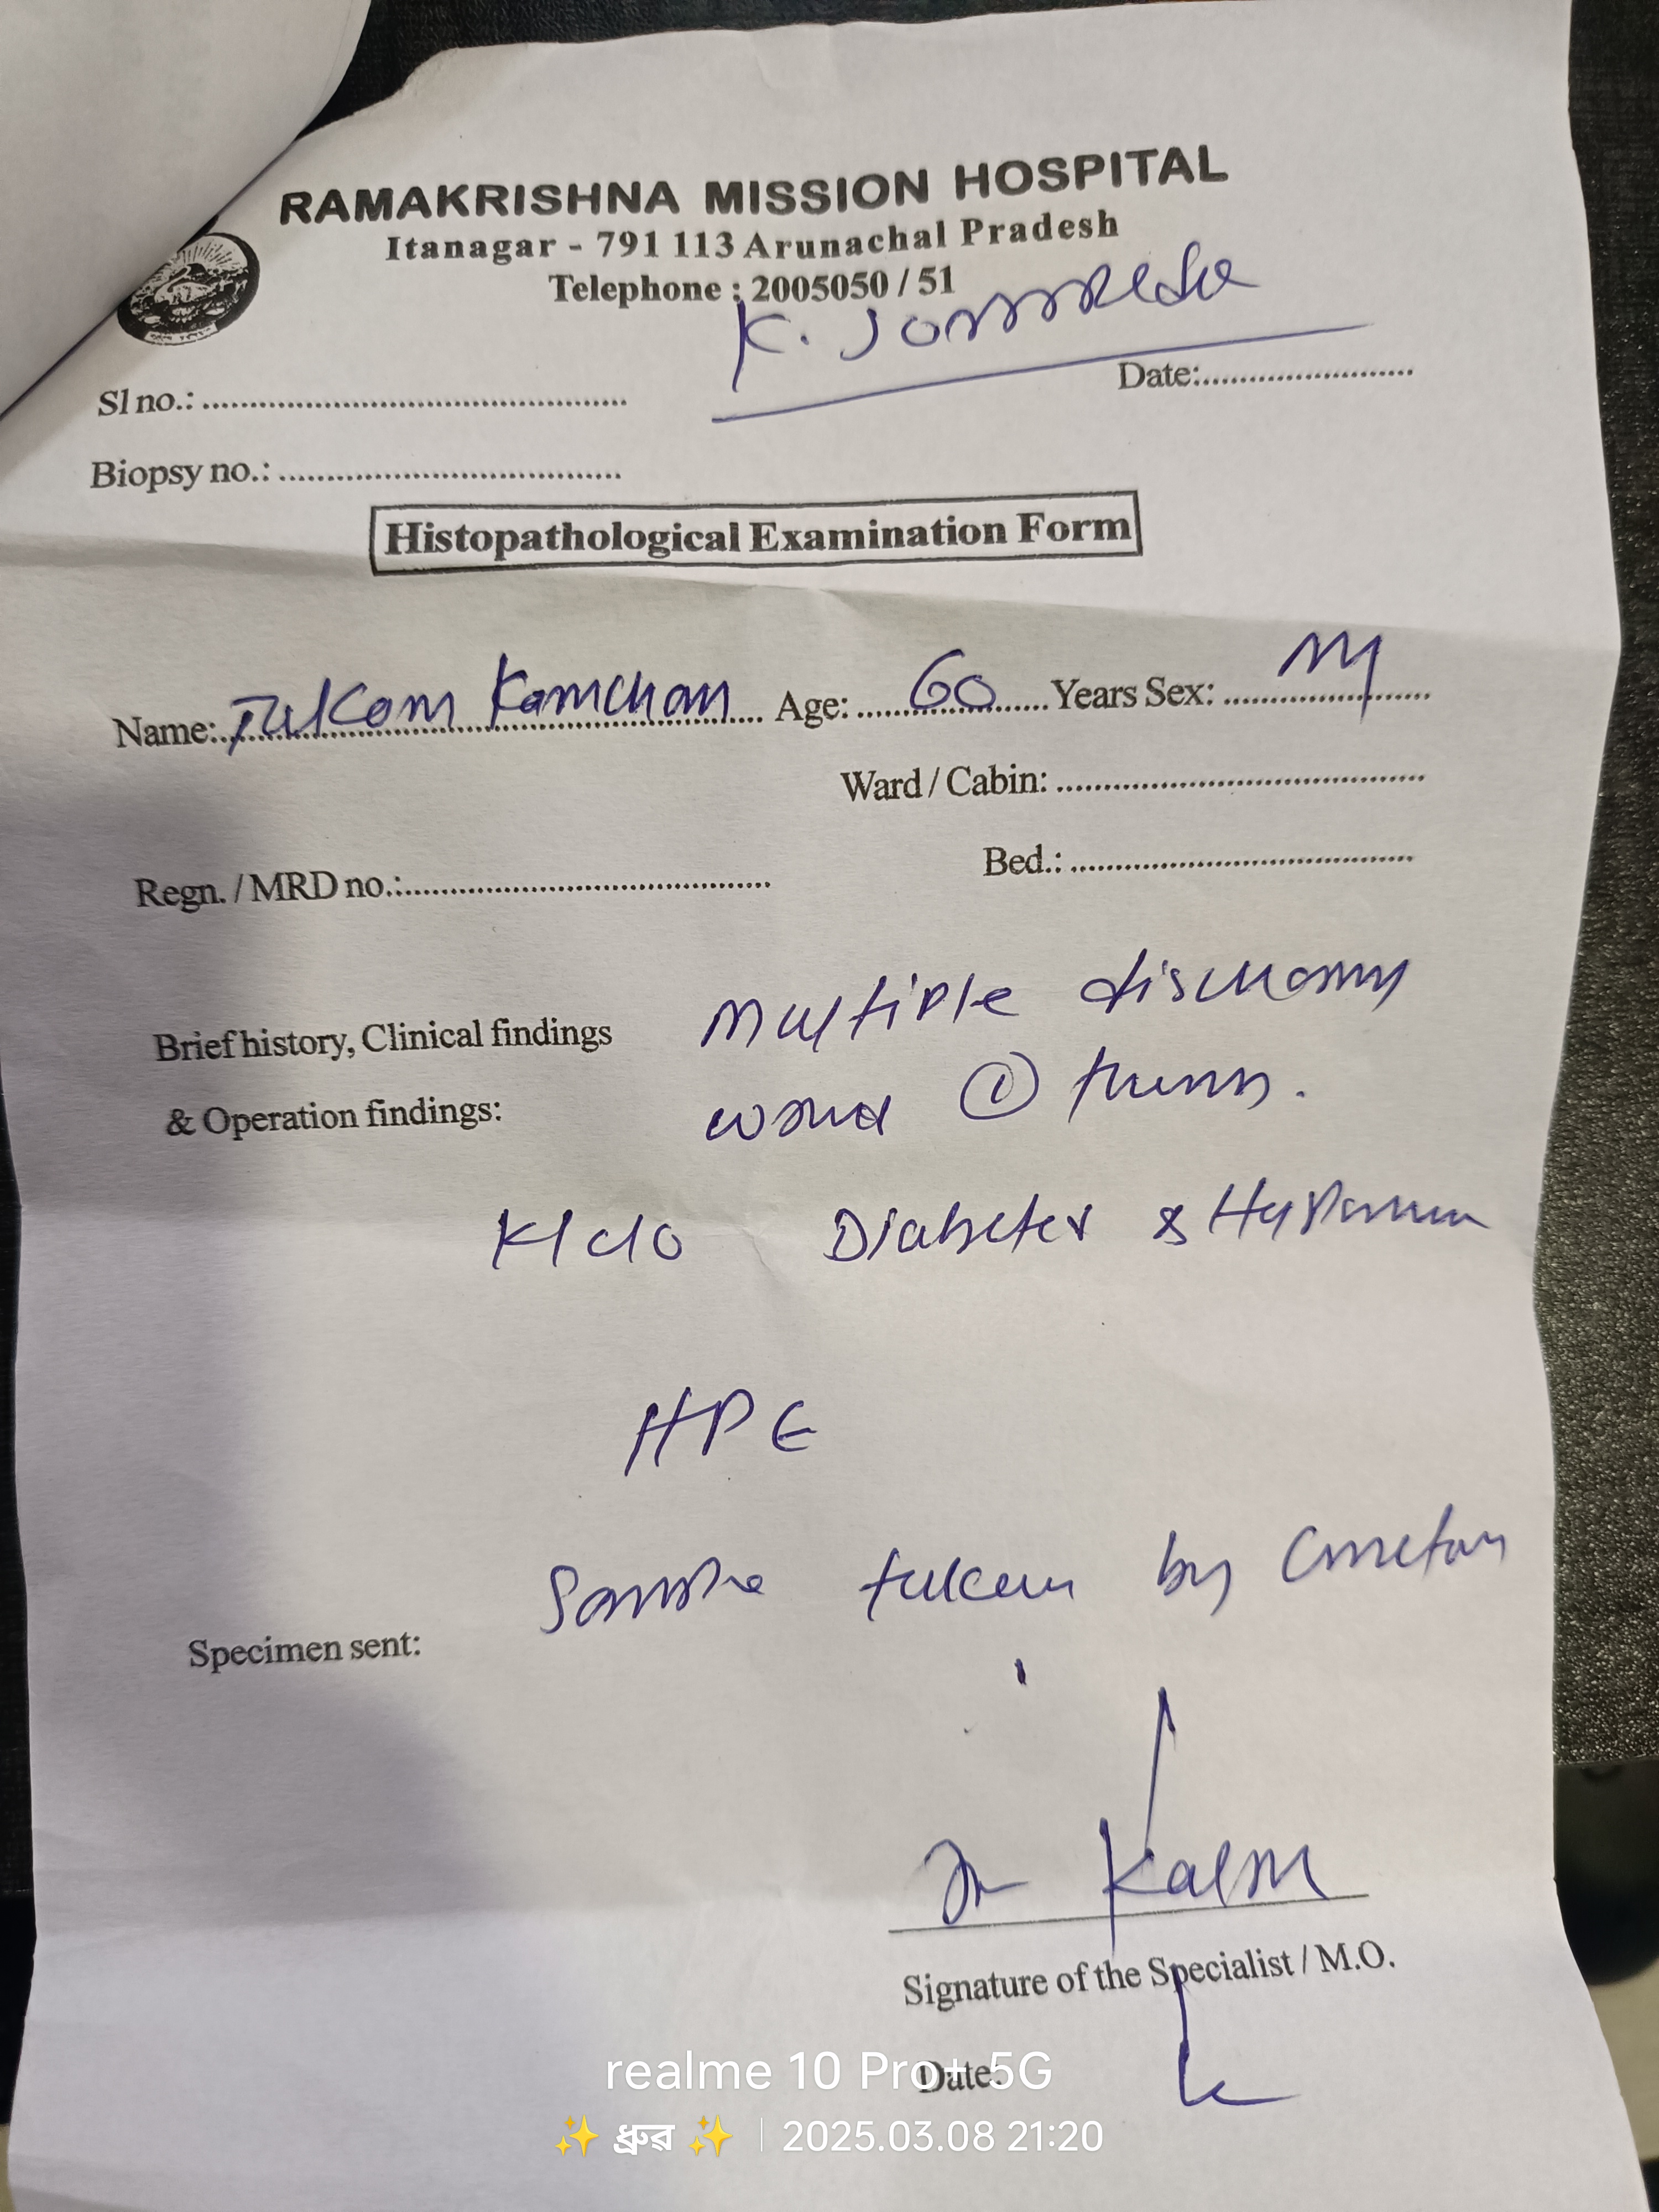 RAMAKRISHNA MISSION HOSPITAL
Itanagar - 791 113 Arunachal Pradesh
Telephone : 2005050 / 51
K.
Sl no.: Date:
Biopsy no.:
Histopathological Examination Form
Name: Kamcham Age: 60 Years Sex: M
Ward / Cabin:
Regn. / MRD no.: Bed.:
Brief history, Clinical findings Multiple
& Operation findings: wound L
K/c/o Diabetes &
HPE
Sample taken by
Specimen sent:
Dr
Signature of the Specialist / M.O.
Date:
realme 10 Pro+ 5G
✨ ধ্রুৱ ✨ | 2025.03.08 21:20